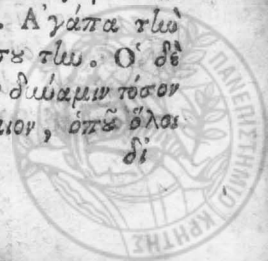 . Ἀγάπα τὴν
σου την. Ὁ δὲ
δύναμιν τόσον
μιον, ὁποῦ ὅλοι
δι
ΠΑΝΕΠΙΣΤΗΜΙΟ ΚΡΗΤΗΣ